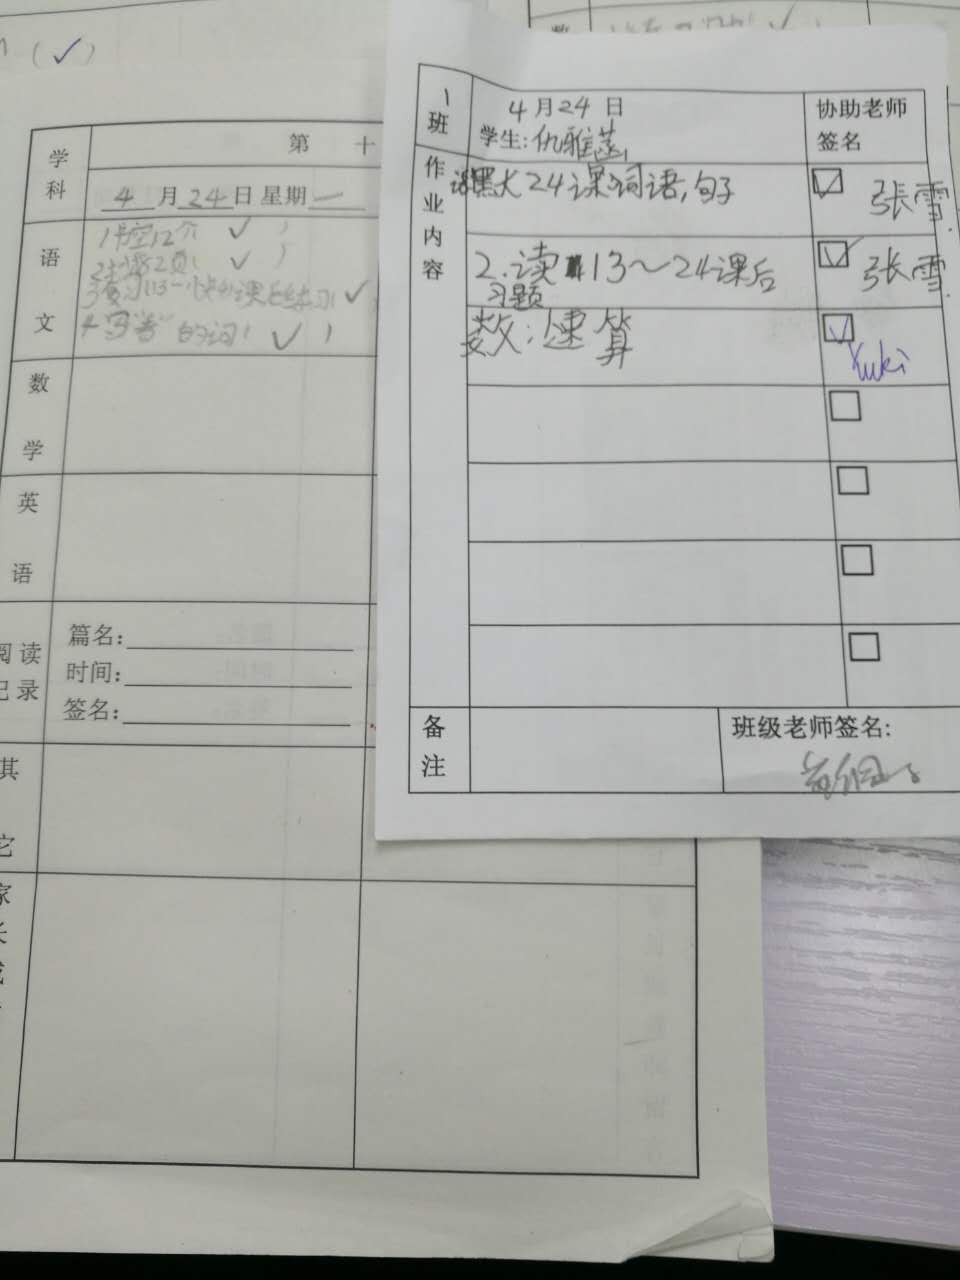 (✓)
学科
第 十
4月24日 星期一
语文
2 2页 ✓
4 写 的词 ✓
数学
英语
阅读
记录
篇名:
时间:
签名:
其
它
家
长
1班
4月24日
学生:仇雅菡
协助老师
签名
作业内容
默大24课词语,句子
☑ 张雪
2.读13~24课后
习题
☑ 张雪
数:速算
☑ Yuki
备注
班级老师签名: